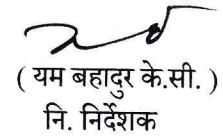 ( यम बहादुर के.सी. )
नि. निर्देशक